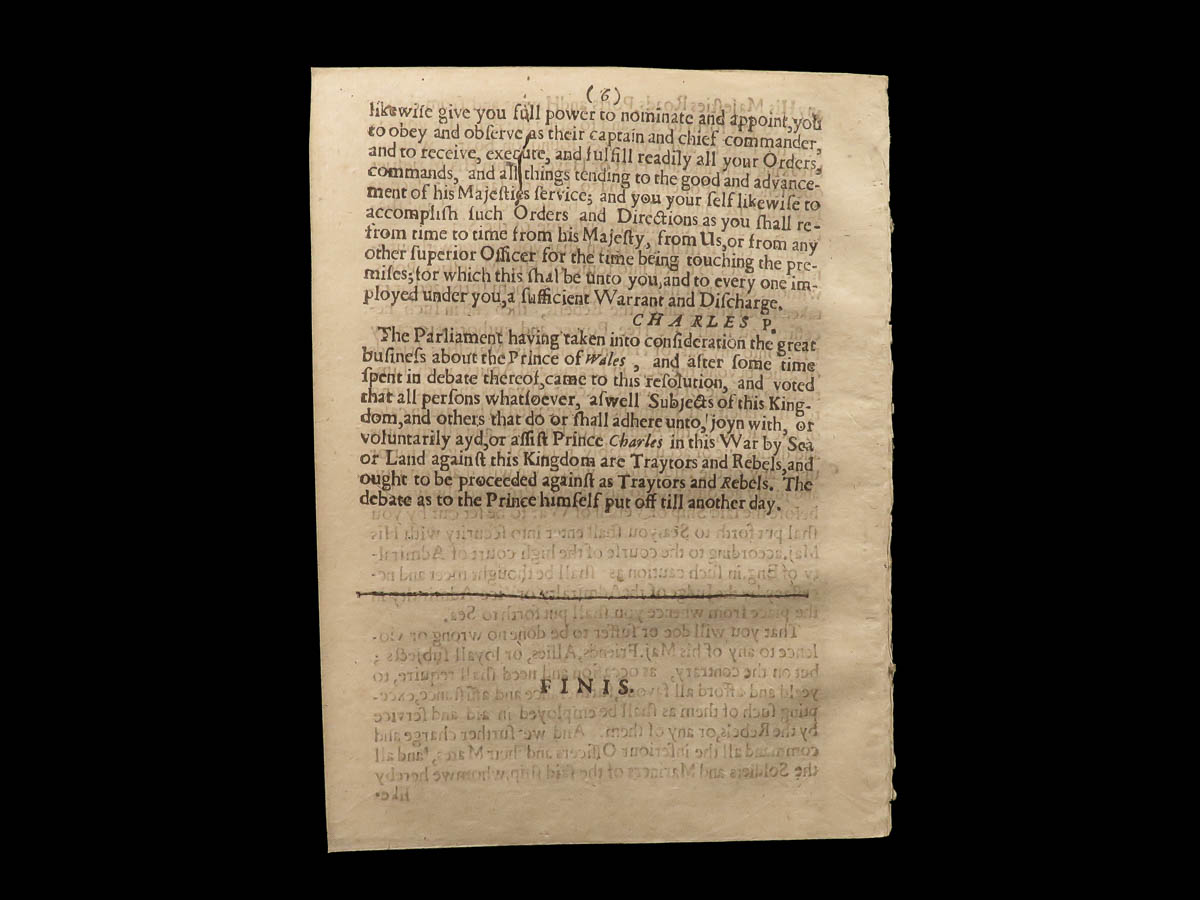 (6)
likewiſe give you full power to nominate and appoint, you
to obey and obſerve as their captain and chief commander,
and to receive, execute, and fulfill readily all your Orders,
commands, and all things tending to the good and advance-
ment of his Majeſties ſervice; and you your ſelf likewiſe to
accompliſh ſuch Orders and Directions as you ſhall re-
from time to time from his Majeſty, from Us, or from any
other ſuperior Officer for the time being touching the pre-
miſes; for which this ſhal be unto you, and to every one im-
ployed under you, a ſufficient Warrant and Diſcharge.
CHARLES P.
The Parliament having taken into conſideration the great
buſineſs about the Prince of Wales, and after ſome time
ſpent in debate thereof, came to this reſolution, and voted
that all perſons whatſoever, aſwell Subjects of this King-
dom, and others that do or ſhall adhere unto, joyn with, or
voluntarily ayd, or aſſiſt Prince Charles in this War by Sea
or Land againſt this Kingdom are Traytors and Rebels, and
ought to be proceeded againſt as Traytors and Rebels. The
debate as to the Prince himſelf put off till another day.
FINIS.